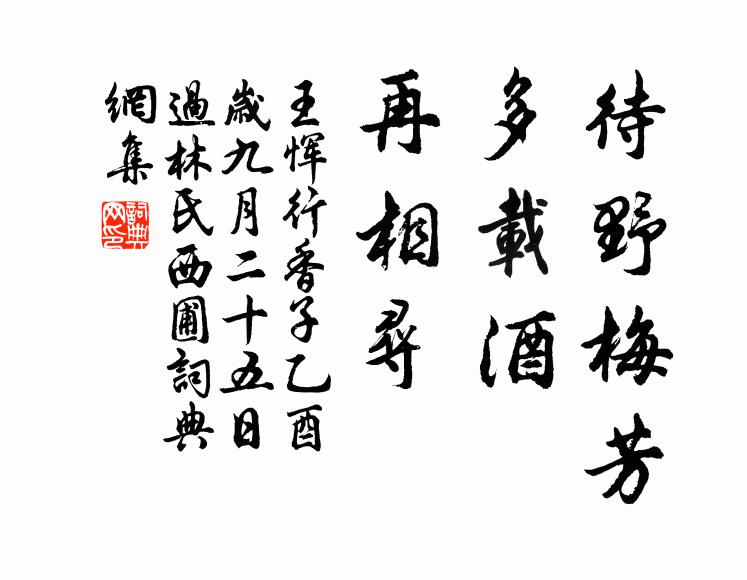 待野梅芳
多載酒
再相尋
王惲行香子乙酉
歲九月二十五日
過林氏西圃詞典
網集
詞典
网印